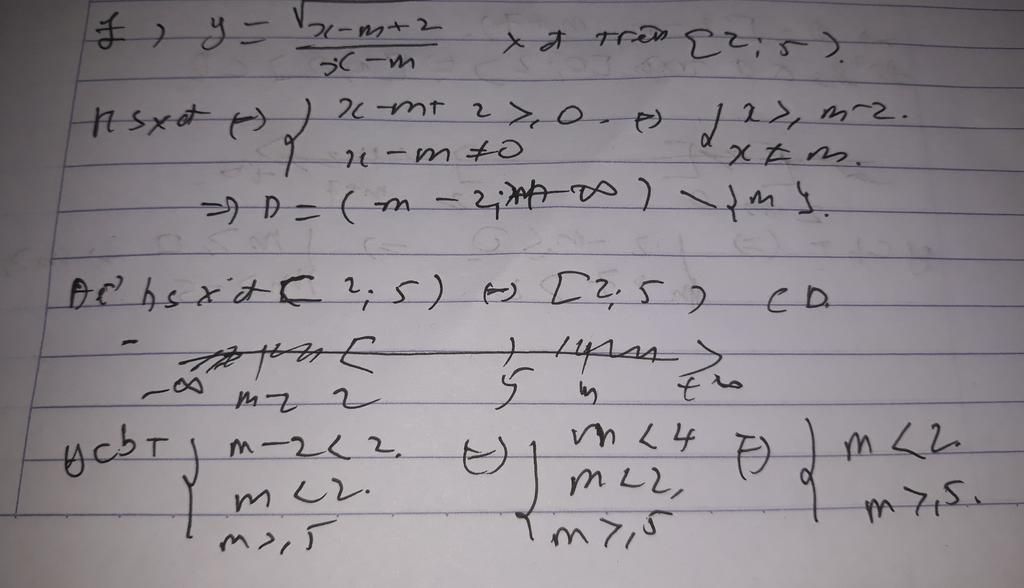 f) y = √(x-m+2) / (x-m) xđ trên [2; 5).
hsxđ ⇔ { x-m+2 ≥ 0. ⇔ { x ≥ m-2.
x-m ≠ 0 x ≠ m.
⇒ D = (m-2; +∞) \ {m}.
Để hsxđ [2; 5) ⇔ [2; 5) ⊂ D.
-∞ m-2 2 5 m +∞
ycbt { m-2 < 2. ⇔ { m < 4 ⇔ { m < 2.
m < 2. m < 2, m ≥ 5.
m ≥ 5 m ≥ 5